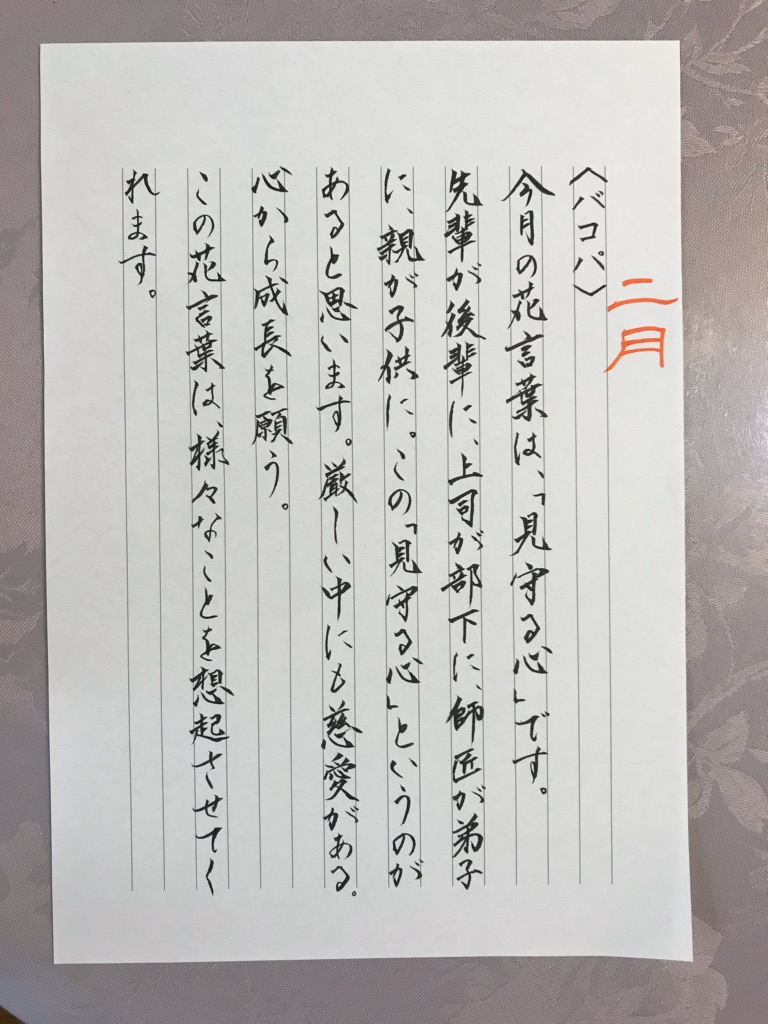 二月
〈バコパ〉
今月の花言葉は、「見守る心」です。
先輩が後輩に、上司が部下に、師匠が弟子
に、親が子供に。この「見守る心」というのが
あると思います。厳しい中にも慈愛がある。
心から成長を願う。
この花言葉は、様々なことを想起させてく
れます。